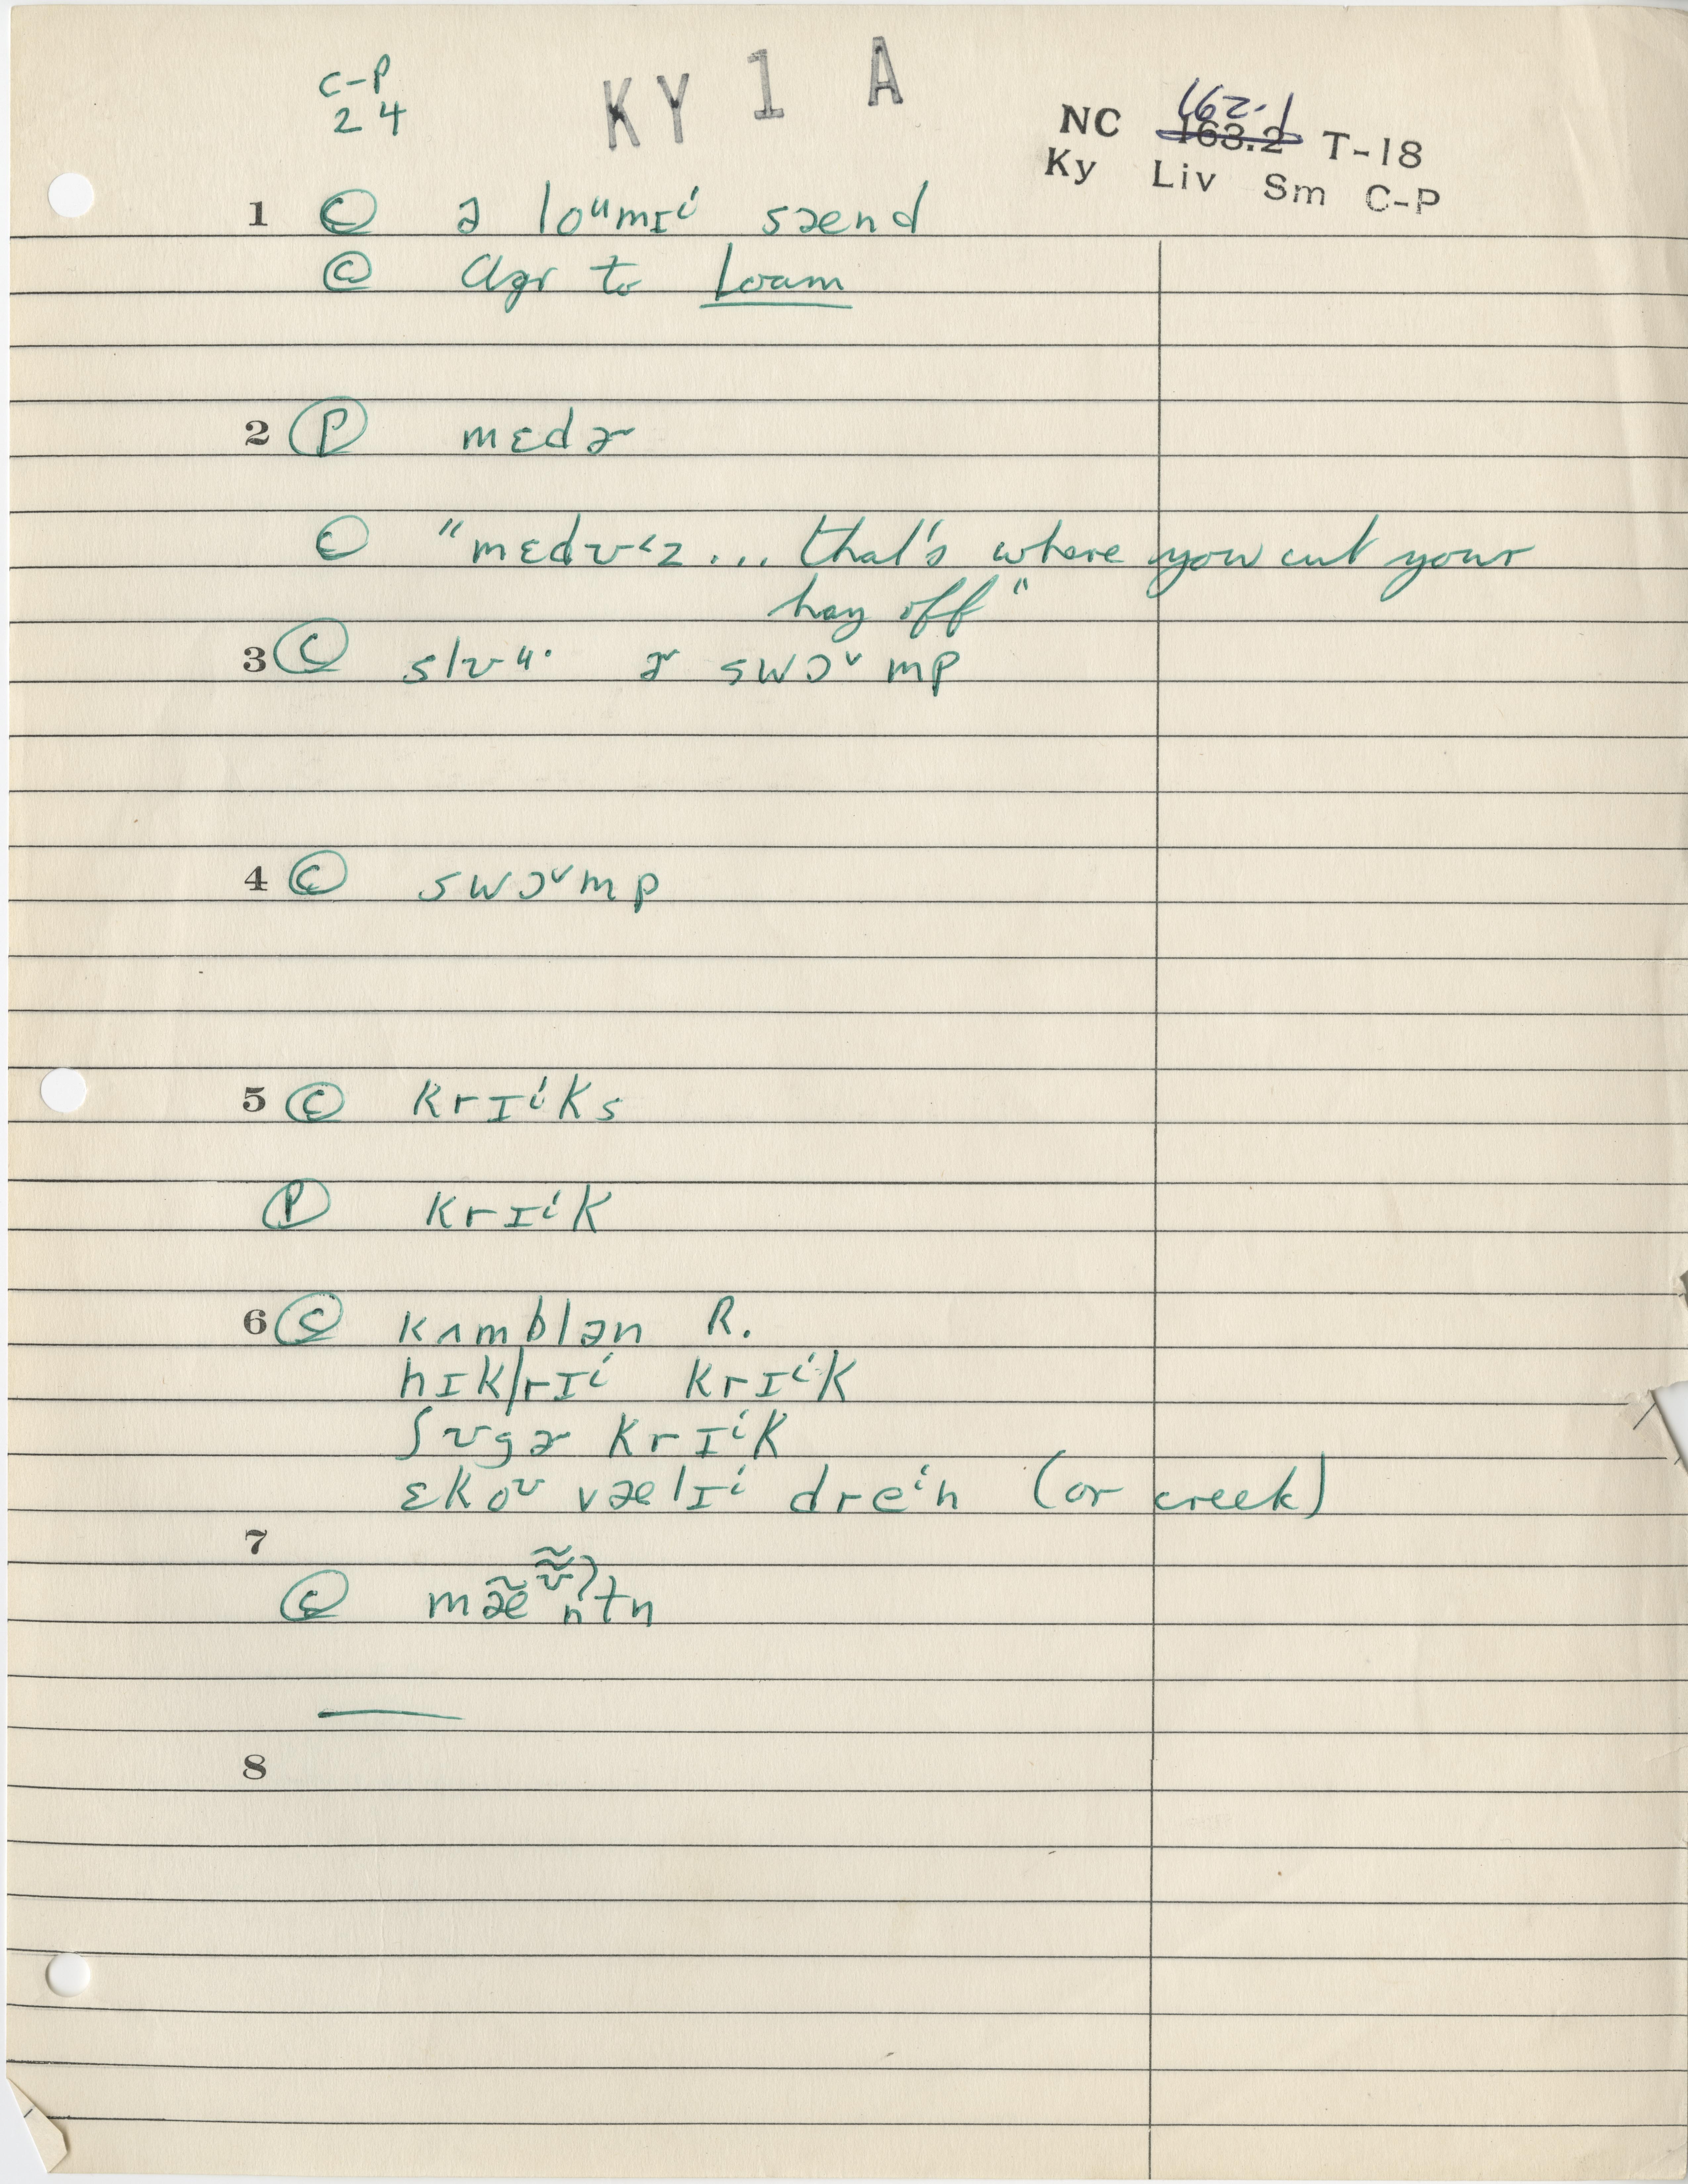 C-P
24
KY 1 A
NC 162.1 163.2 T-18
Ky Liv Sm C-P
1 C ə loᵘmɪⁱ sænd
C Agr to Loam
2 P mɛdɚ
C "mɛdʊ˂z... that's where you cut your
hay off"
3 C slʊᵘ· ɚ swɔ˅mp
4 C swɔ˅mp
5 C krɪⁱks
P krɪⁱk
6 C kʌmblən R.
hɪk|rɪⁱ krɪⁱk
ʃʊgɚ krɪⁱk
ɛkoʊ vælɪⁱ dreⁱn (or creek)
7
C mæ̃ʊ̃ntn
8